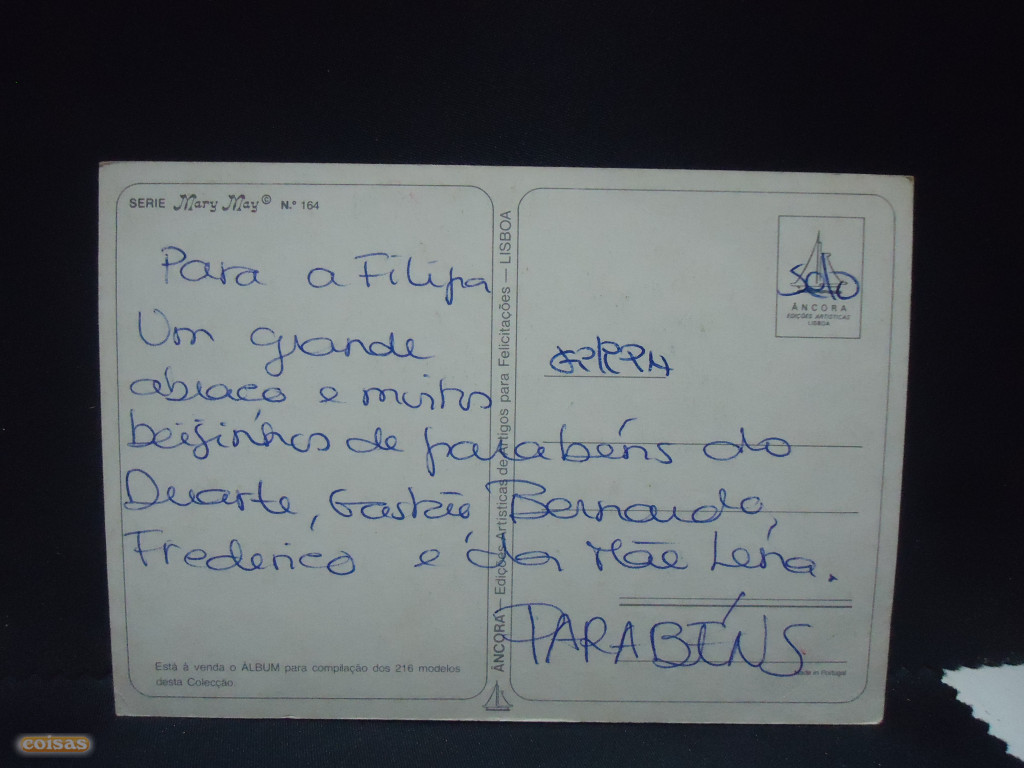 SERIE Mary May © N.º 164
Para a Filipa
Um grande
abraço e muitos
beijinhos de parabéns do
Duarte, Gastão, Bernardo,
Frederico e da Mãe Lena.
PARABÉNS
Está à venda o ÁLBUM para compilação dos 216 modelos
desta Colecção.
ÂNCORA — Edições Artísticas de Artigos para Felicitações — LISBOA
selo
ÂNCORA
EDIÇÕES ARTÍSTICAS
LISBOA
Made in Portugal
coisas